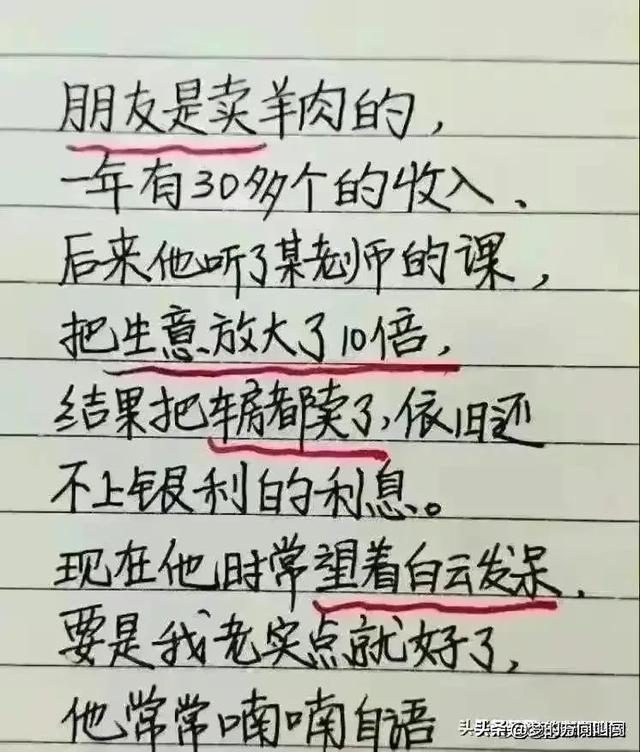 朋友是卖羊肉的，
一年有30多个的收入、
后来他听了某老师的课，
把生意放大了10倍，
结果把车房都卖了，依旧还
不上银利的利息。
现在他时常望着白云发呆，
要是我老实点就好了，
他常常喃喃自语